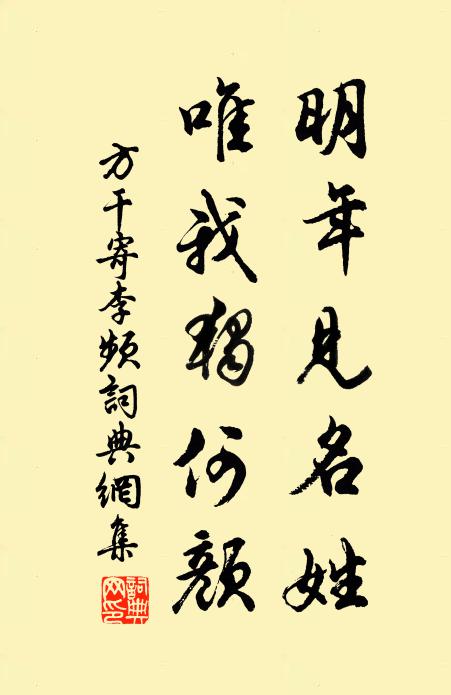 明年見名姓
唯我獨何顏
方干寄李頻詞典網集
詞典網印